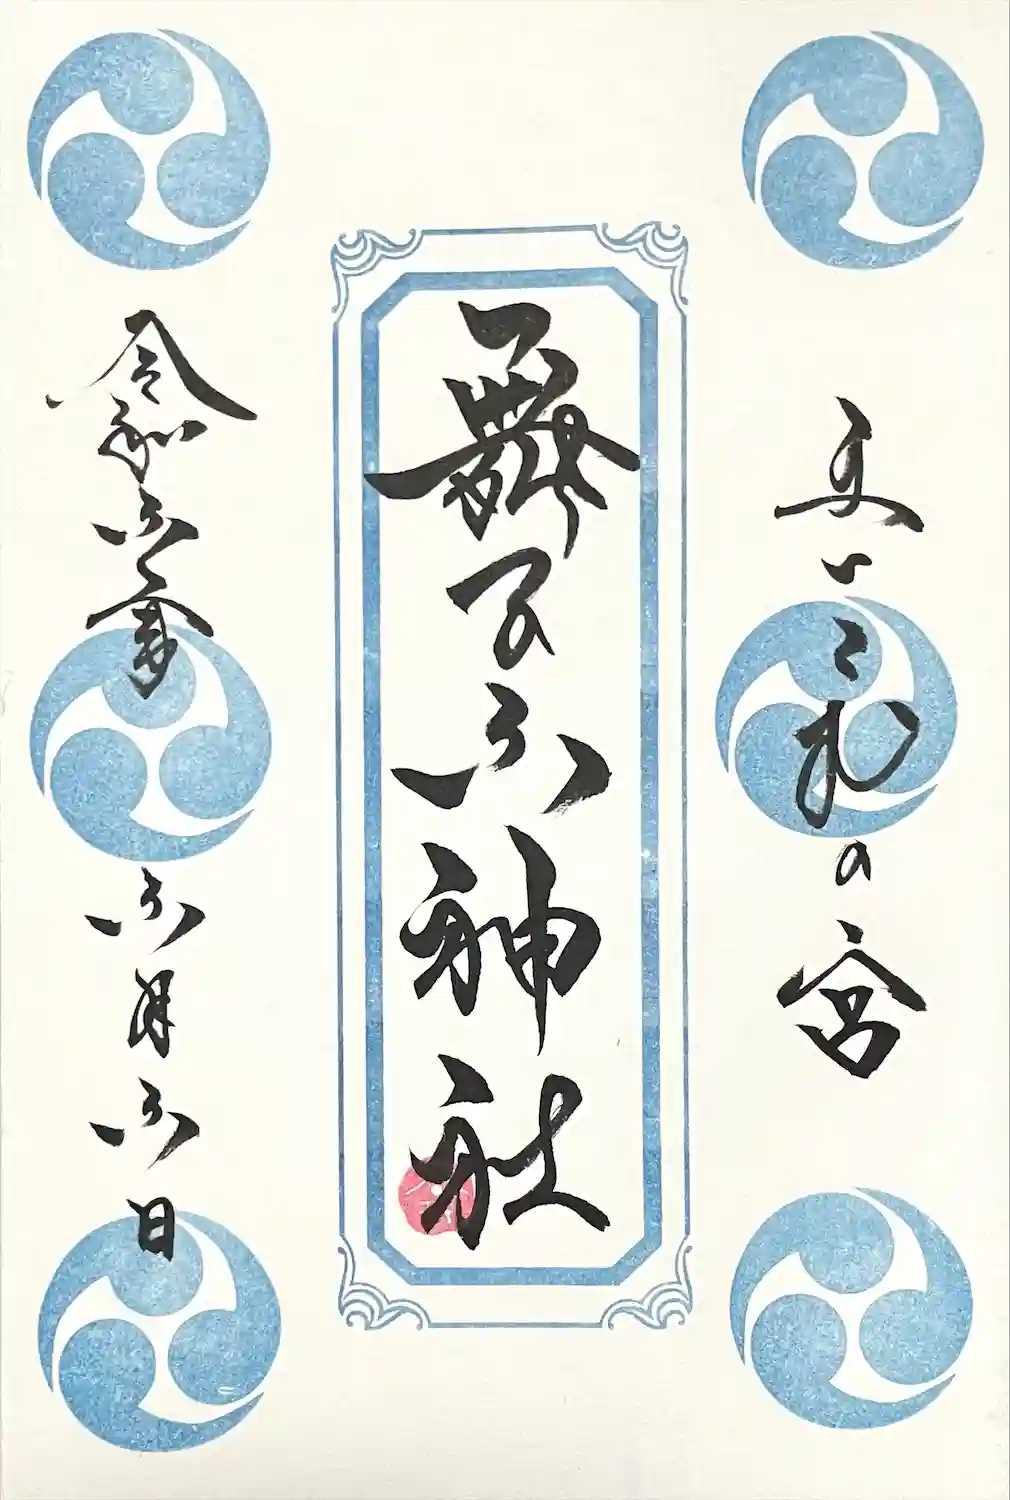 の宮
舞子六神社
令和六年六月六日